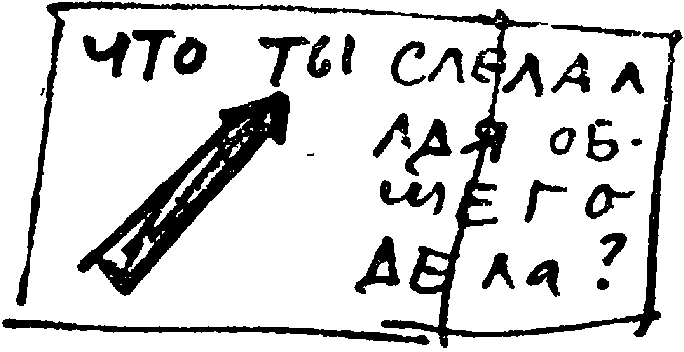 ЧТО ТЫ СДЕЛАЛ
ДЛЯ ОБ-
ЩЕГО
ДЕЛА?